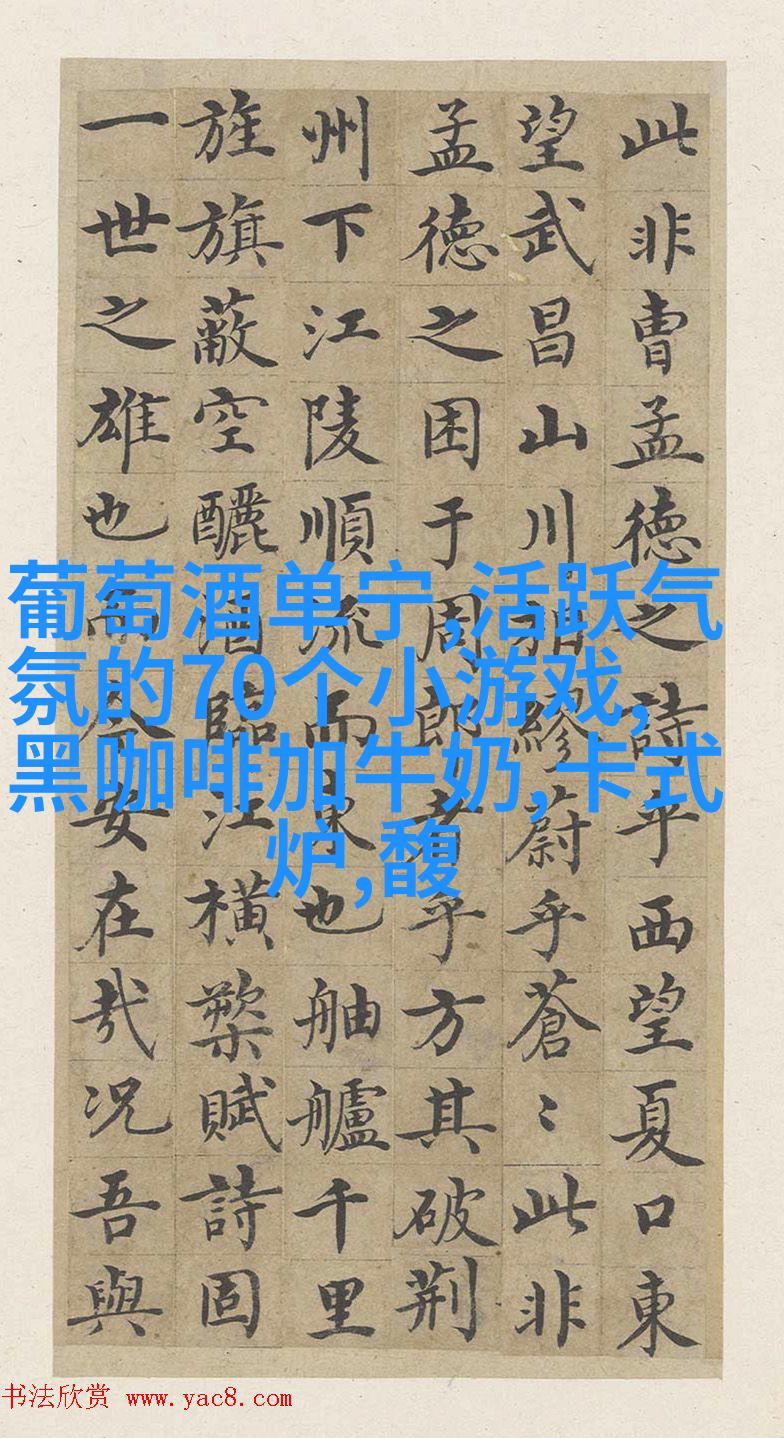 此非曹孟德之詩乎西望夏口東
望武昌山川相繆蔚乎蒼〻此非
孟德之困于周郎者乎方其破荆
州下江陵順流而東也舳艫千里
旌旗蔽空釃酒臨江橫槊賦詩固
一世之雄也而今安在哉况吾與
葡萄酒单宁,活跃气
氛的70个小游戏,
黑咖啡加牛奶,卡式
炉,馥
书法欣赏 www.yac8.com